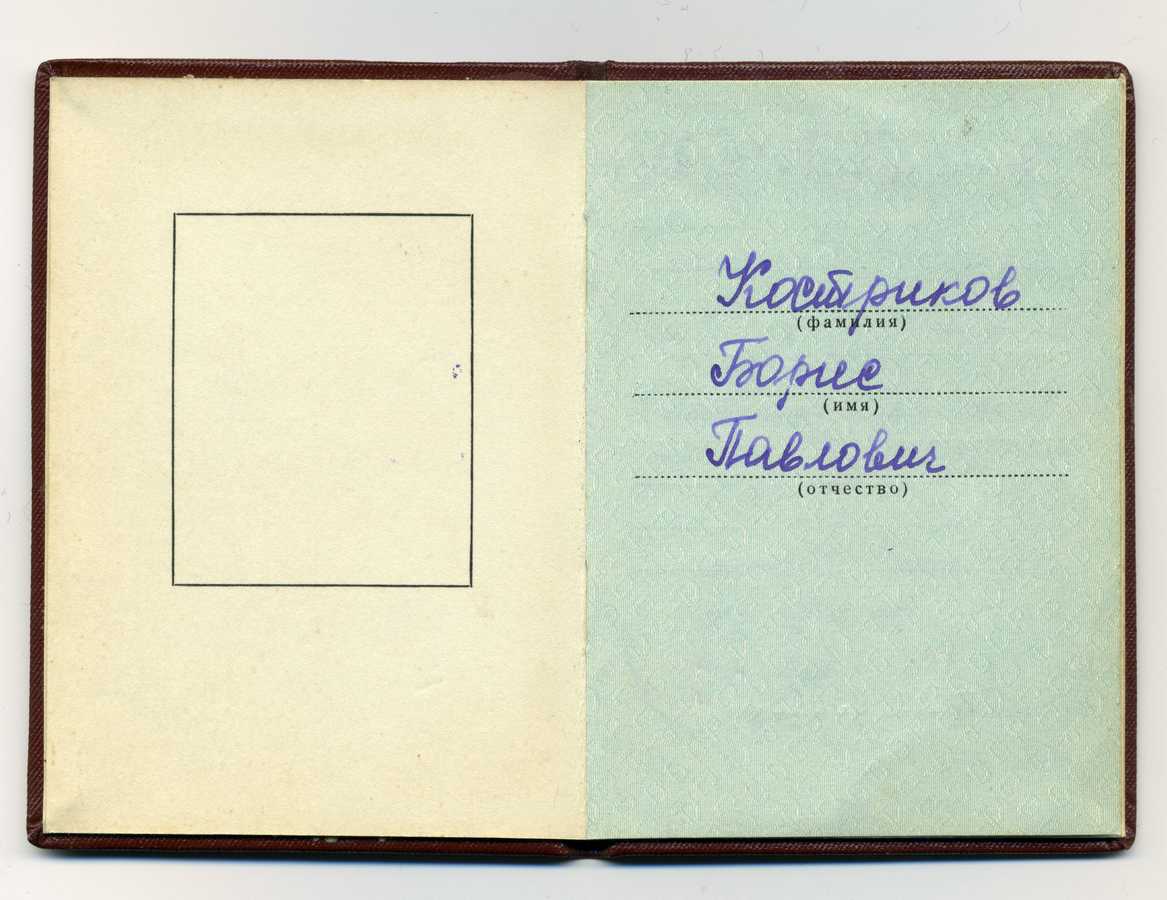 Костриков
(фамилия)
Борис
(имя)
Павлович
(отчество)